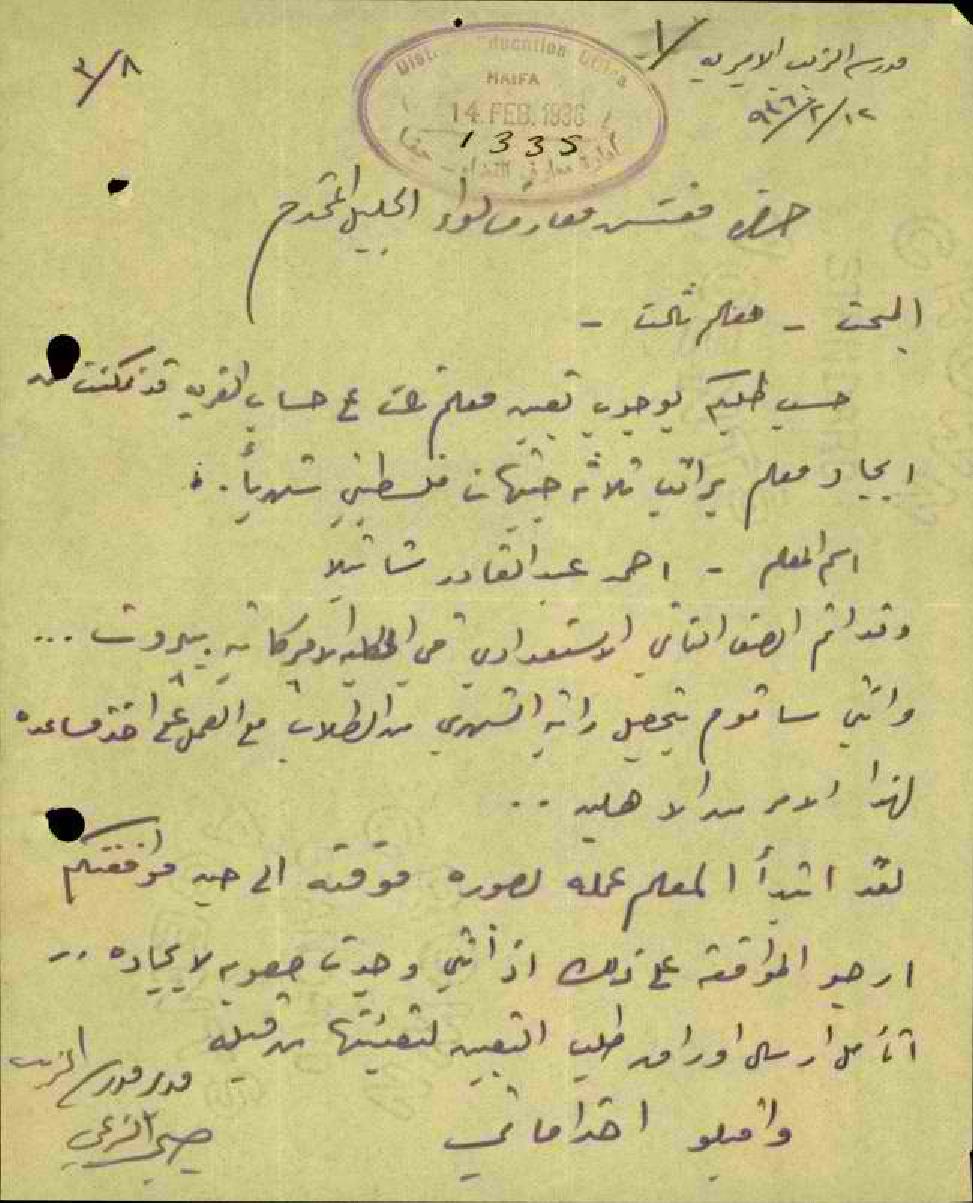 مدرسة الزيب الاميرية
١٢/٢/٩٣٦
٣/٨
١/
District Education Office
HAIFA
14. FEB. 1936
1335
ادارة معارف اللواء - حيفا
حضرة مفتش معارف لواء الجليل المحترم
البحث - معلم ثالث -
حسب طلبكم بوجوب تعيين معلم ثالث على حساب القرية قد تمكنت من
ايجاد معلم براتب ثلاثة جنيهات فلسطيني شهرياً.
اسم المعلم - احمد عبد القادر شاتيلا
وقد اتم الصف الثاني الاستعدادي في الكلية الامركانية ببيروت ...
وانني ساقوم بتحصيل راتبه الشهري من الطلاب مع العمل على اخذ مساعدة
لهذا الامر من الاهلين ..
لقد ابتدأ المعلم عمله بصورة موقتة الى حين موافقتكم
ارجو الموافقة على ذلك اذ انني وجدت صعوبة لايجاده ..
آمل ارسال اوراق طلب التعيين لتعبئتها من قبله
واقبلو احتراماتي
مدير مدرسة الزيب